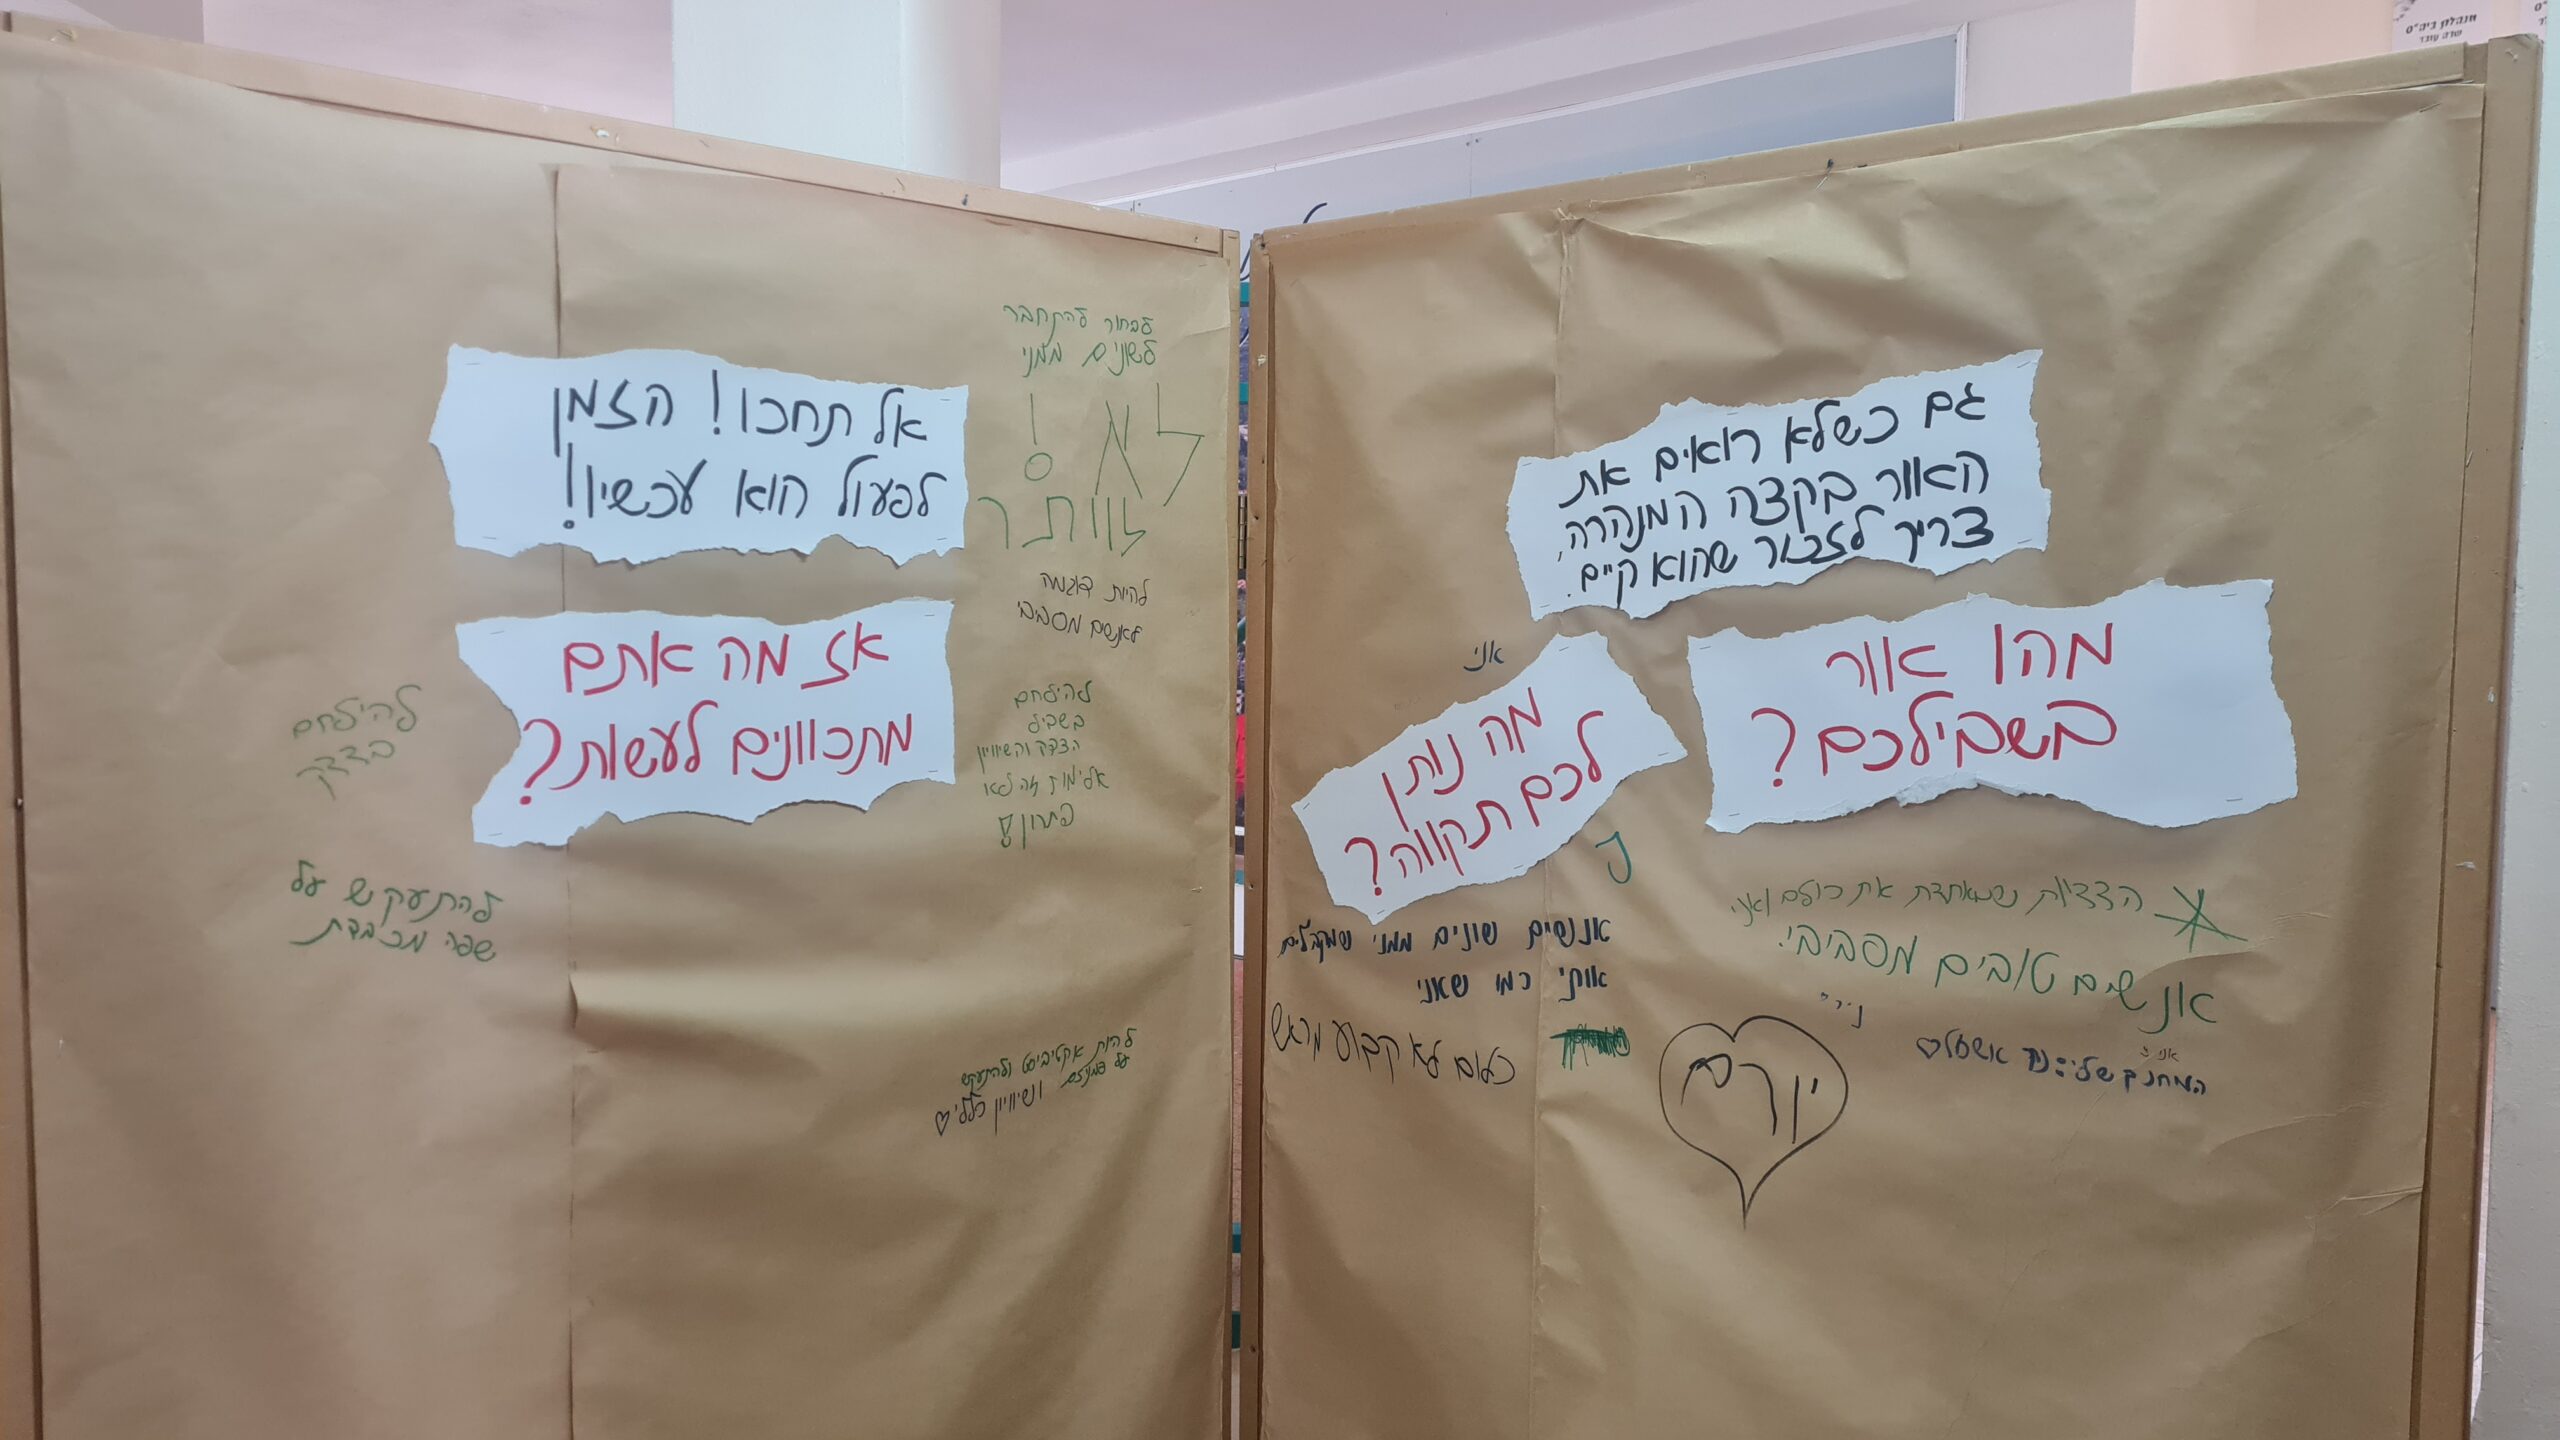 מנהלת ביה"ס
אל תחכו! הזמן
לפעול הוא עכשיו!
אז מה אתם
מתכוונים לעשות?
לבחור להתחבר
לשונים ממני
לא!
לוותר
להיות דוגמה
לאנשים מסביבי
להילחם
בשביל
הצדק והשיוויון
אלימות זה לא
פתרון
להילחם
בצדק
להתעקש על
שפה מכבדת
להיות אקטיביסט ולהתעקש
על פמניזם ושיוויון כללי ♡
גם כשלא רואים את
האור בקצה המנהרה,
צריך לזכור שהוא קיים.
אני
מה נותן
לכם תקווה?
מהו אור
בשבילכם?
אנשים שונים ממני שמקבלים
אותי כמו שאני
כלום לא קבוע מראש
את כולם ואני
אנשים טובים מסביבי.
אני
אשכול ♡
יורם